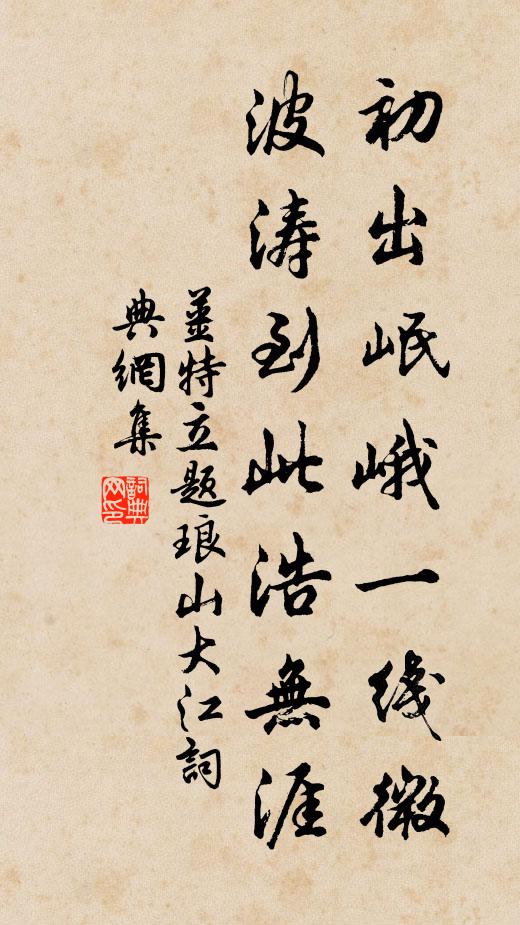 初出岷峨一线微
波涛到此浩無涯
薑特立题琅山大江詞
典網集
詞典网印